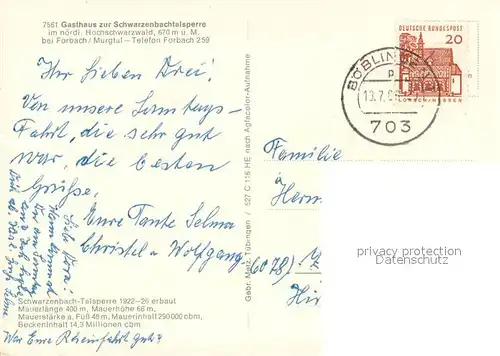 7561 Gasthaus zur Schwarzenbachtalsperre
im nördl. Hochschwarzwald, 670 m ü. M.
bei Forbach / Murgtal – Telefon Forbach 259
Ihr lieben Drei!
Von unsere Samtags-
Fahrt, die sehr gut
war, die besten
Grüße,
Eure Tante Selma
Christel u Wolfgang
War Eure Rheinfahrt gut?
Schwarzenbach-Talsperre 1922–26 erbaut
Mauerlänge 400 m, Mauerhöhe 66 m,
Mauerstärke a. Fuß 48 m, Mauerinhalt 290 000 cbm,
Beckeninhalt 14,3 Millionen cbm
Gebr. Metz, Tübingen / 527 C 116 HE nach Agfacolor-Aufnahme
DEUTSCHE BUNDESPOST
20
LORSCH/HESSEN
BÖBLINGEN
p
13.7.
703
Familie
Herm
6078)
privacy protection
Datenschutz